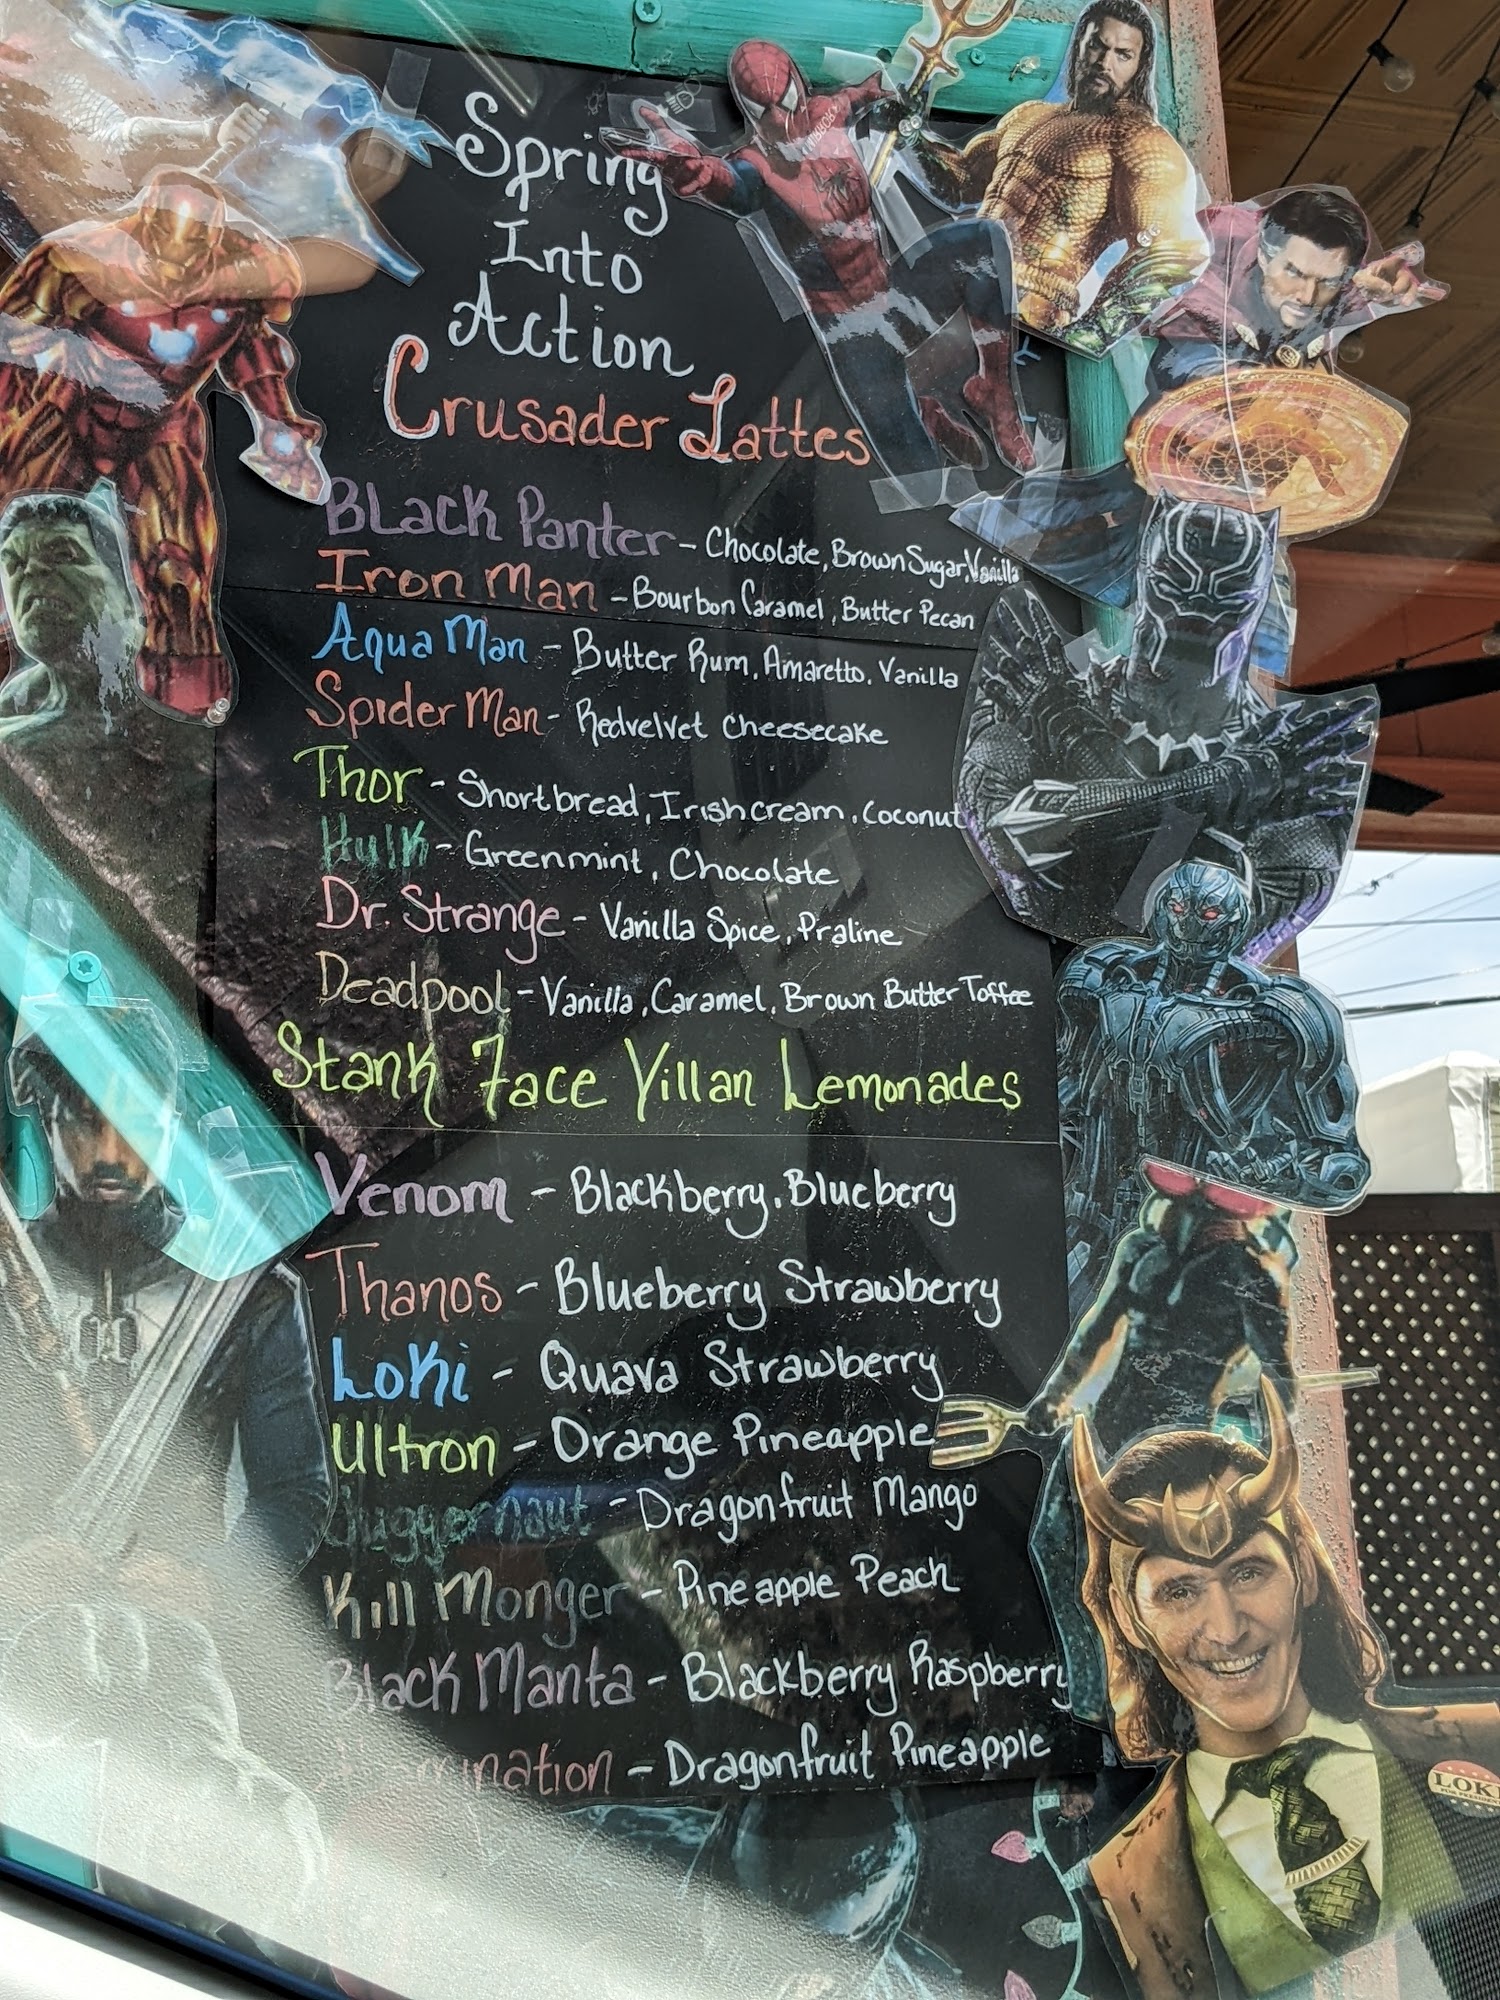 Spring
Into
Action
Crusader Lattes
Black Panter - Chocolate, Brown Sugar, Vanilla
Iron Man - Bourbon Caramel, Butter Pecan
Aqua Man - Butter Rum, Amaretto, Vanilla
Spider Man - Redvelvet cheesecake
Thor - Shortbread, Irish cream, Coconut
Hulk - Greenmint, Chocolate
Dr. Strange - Vanilla Spice, Praline
Deadpool - Vanilla, Caramel, Brown Butter Toffee
Stank Face Villan Lemonades
Venom - Blackberry, Blueberry
Thanos - Blueberry Strawberry
Loki - Quava Strawberry
Ultron - Orange Pineapple
Juggernaut - Dragonfruit Mango
Kill Monger - Pineapple Peach
Black Manta - Blackberry Raspberry
- Dragonfruit Pineapple
LOKI